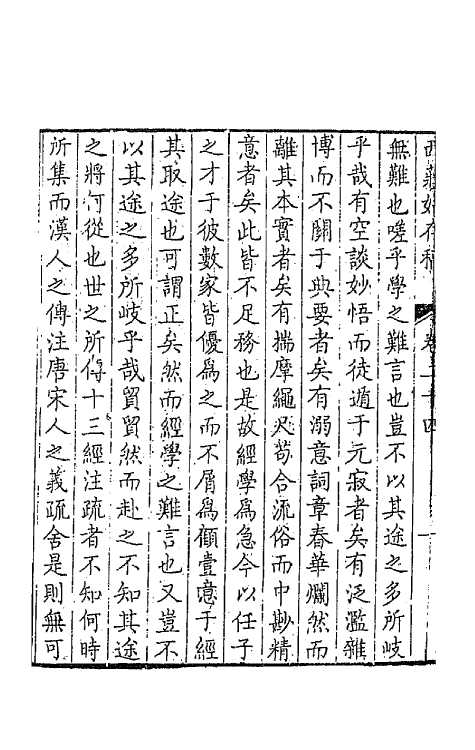 西莊始存稿 卷二十四
無難也嗟乎學之難言也豈不以其途之多所歧
乎哉有空談妙悟而徒遁于元寂者矣有泛濫雜
博而不關于典要者矣有溺意詞章春華爛然而
離其本實者矣有揣摩繩尺苟合流俗而中尠精
意者矣此皆不足務也是故經學爲急今以任子
之才于彼數家皆優爲之而不屑爲顧壹意于經
其取途也可謂正矣然而經學之難言也又豈不
以其途之多所歧乎哉貿貿然而赴之不知其途
之將何從也世之所傳十三經注疏者不知何時
所集而漢人之傳注唐宋人之義疏舍是則無可